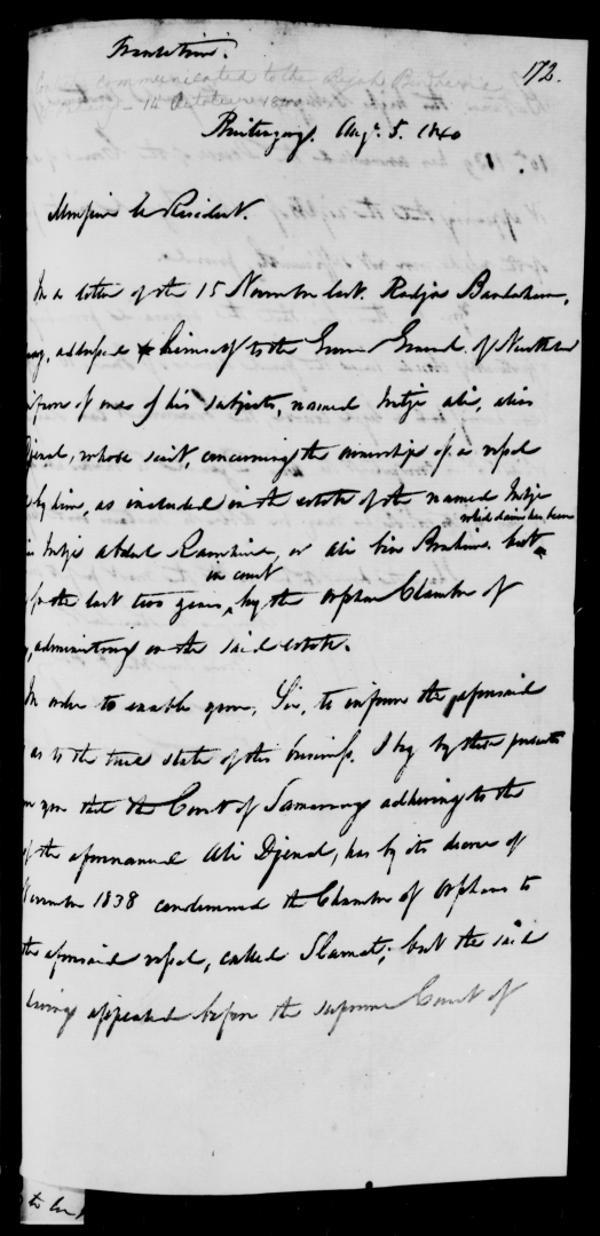 Translation.
172.
communicated to the Rajah
14 October 1840
Buitenzorg. Aug. 5. 1840
Monsieur le Resident.
In a letter of the 15 November last. Radja Bandahara,
addressed himself to the Governor General of Netherland
of one of his subjects, named Intje Ali, alias
Djenal, whose suit, concerning the ownership of a vessel
by him, as included in the estate of the named Intje
which claim has been
Intje Abdul Ramhim, or Ali bin Brahim. but
in court
for the last two years, by the Orphan Chamber of
administering on the said estate.
In order to enable you, Sir, to inform the aforesaid
as to the true state of this business, I beg by these presents
you that the Court of Samarang adhering to the
of the aforenamed Ali Djenal, has by its decree of
November 1838 condemned the Chamber of Orphans to
the aforesaid vessel, called Slamat; but the said
having appealed before the supreme Court of
to be